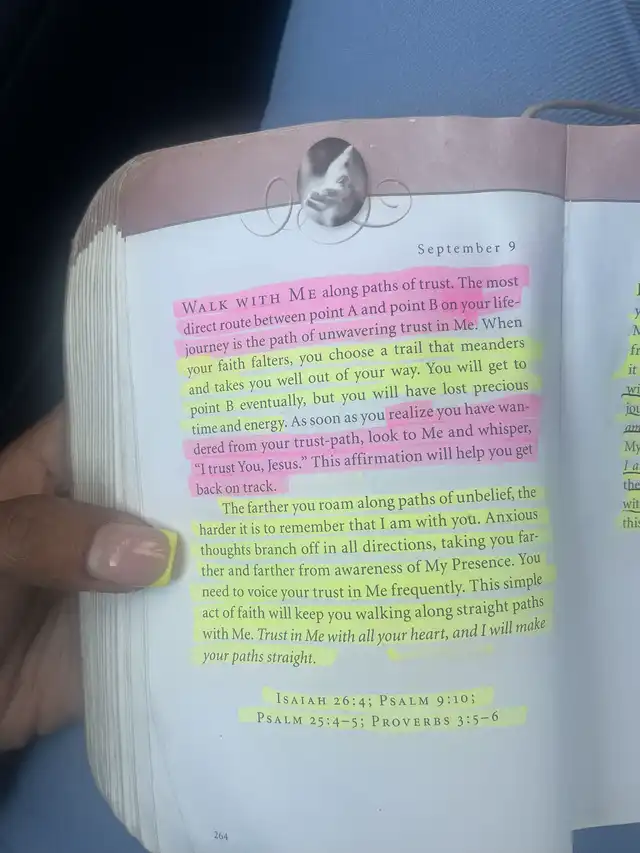 September 9
WALK WITH ME along paths of trust. The most
direct route between point A and point B on your life-
journey is the path of unwavering trust in Me. When
your faith falters, you choose a trail that meanders
and takes you well out of your way. You will get to
point B eventually, but you will have lost precious
time and energy. As soon as you realize you have wan-
dered from your trust-path, look to Me and whisper,
“I trust You, Jesus.” This affirmation will help you get
back on track.
The farther you roam along paths of unbelief, the
harder it is to remember that I am with you. Anxious
thoughts branch off in all directions, taking you far-
ther and farther from awareness of My Presence. You
need to voice your trust in Me frequently. This simple
act of faith will keep you walking along straight paths
with Me. Trust in Me with all your heart, and I will make
your paths straight.
ISAIAH 26:4; PSALM 9:10;
PSALM 25:4–5; PROVERBS 3:5–6
264